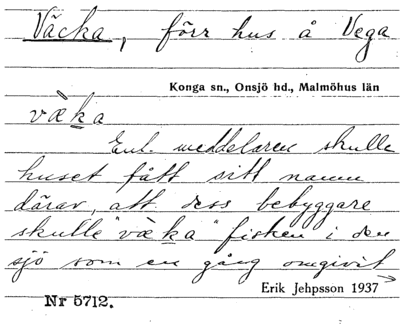 Väcka, förr hus å Vega
Konga sn., Onsjö hd., Malmöhus län
vàka
Enl. meddelaren skulle
huset fått sitt namn
därav, att dess bebyggare
skulle "vàka" fisken i den
sjö som en gång omgivit
Erik Jehpsson 1937
Nr 5712.